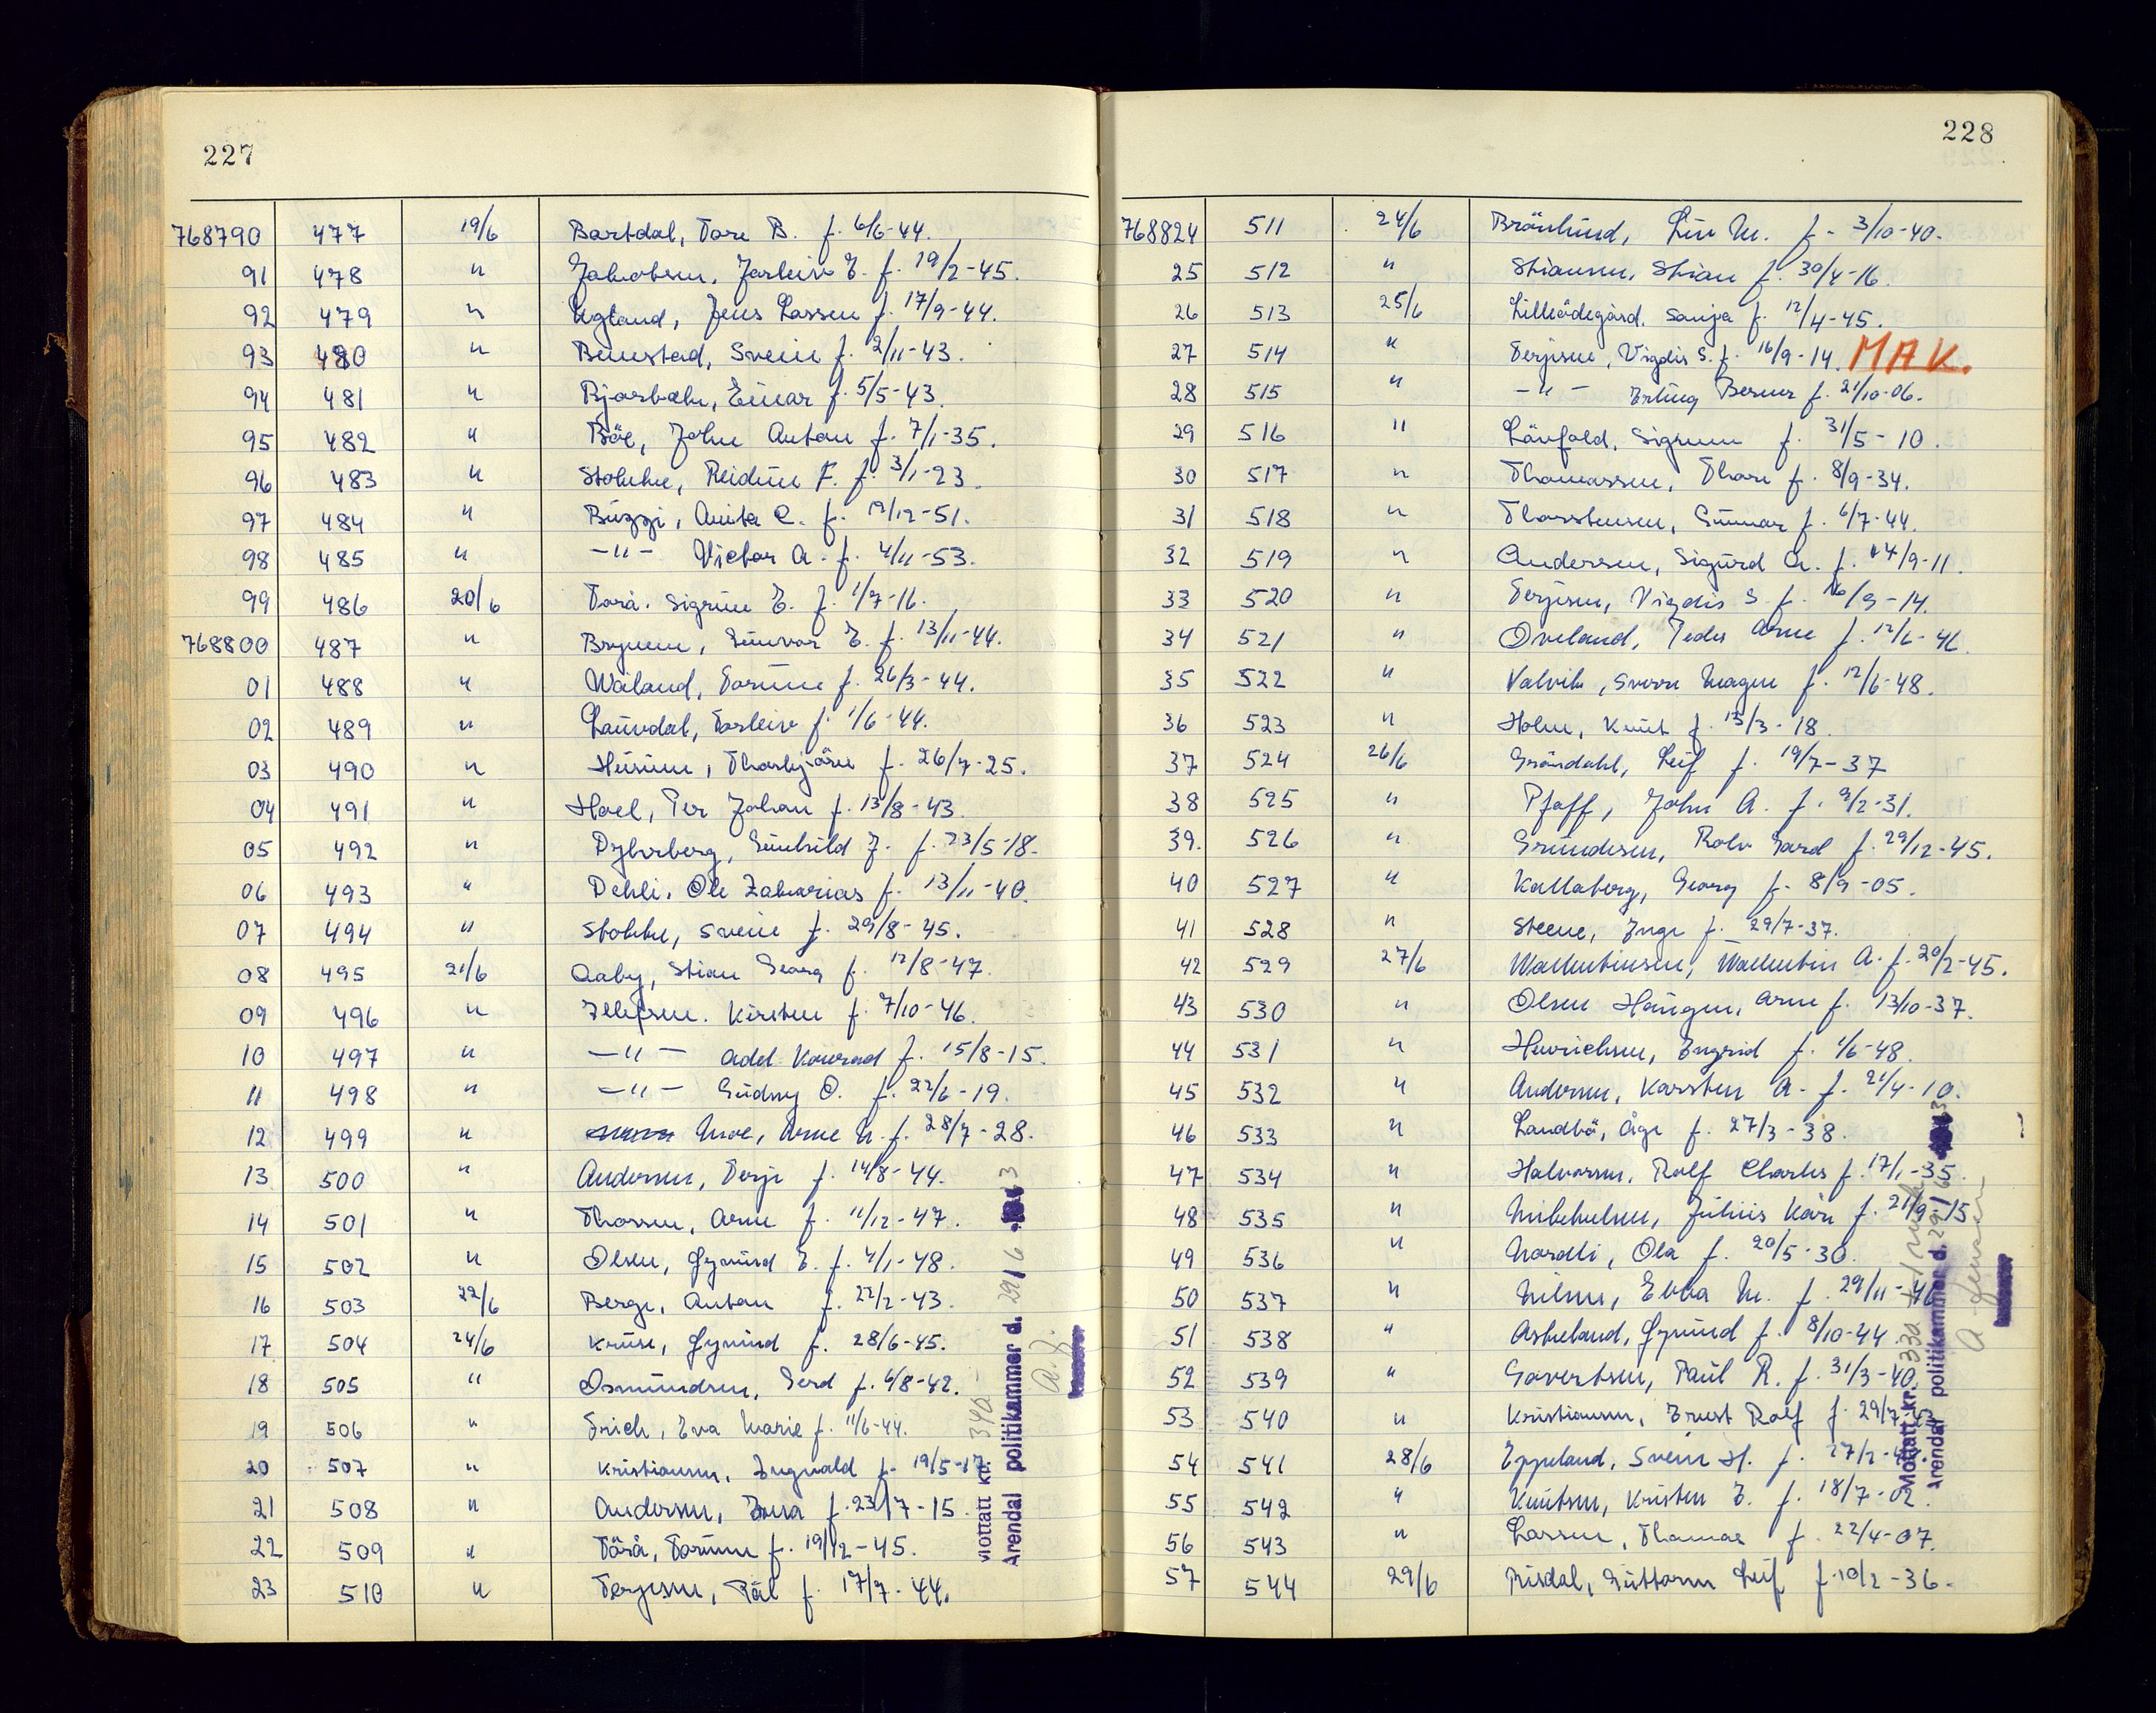 227
768790 477 19/6 Bartdal, Tore B. f. 6/6-44.
91 478 " Jakobsen, Jarleiv E. f. 19/2-45.
92 479 " Ugland, Jens Lassen f. 17/9-44.
93 480 " Beinestad, Svein f. 2/11-43.
94 481 " Bjorbæk, Einar f. 5/5-43.
95 482 " Böe, John Anton f. 7/1-35.
96 483 " Stokke, Reidun F. f. 3/1-23.
97 484 " Buzzi, Anita C. f. 19/12-51.
98 485 " -"- Victor A. f. 4/11-53.
99 486 20/6 Torå. Sigrun E. f. 1/7-16.
768800 487 " Brynem, Gunvor E. f. 13/11-44.
01 488 " Wåland, Torunn f. 26/3-44.
02 489 " Laundal, Torleiv f. 1/6-44.
03 490 " Thorbjörn f. 26/7-25.
04 491 " Hoel, Per Johan f. 13/8-43.
05 492 " Dybvberg, Gunhild J. f. 23/5-18.
06 493 " Dehli, Ole Zakarias f. 13/11-40.
07 494 " Stokke, Svein f. 29/8-45.
08 495 21/6 Aaby, Stian Georg f. 12/8-47.
09 496 " Ellefsen. Kirsten f. 7/10-46.
10 497 " -"- Adel Konrad f. 15/8-15.
11 498 " -"- Gudny O. f. 22/6-19.
12 499 " Moe, Arne N. f. 28/7-28.
13 500 " Andersen, Terje f. 14/8-44.
14 501 " Thorsen, Arne f. 11/12-47.
15 502 " Olsen, Gyurd E. f. 4/1-48.
16 503 22/6 Berge, Anton f. 22/2-43.
17 504 24/6 Kruse, Öyvind f. 28/6-45.
18 505 " Osmundsen, Gerd f. 6/8-42.
19 506 " Erich, Eva Marie f. 11/6-44.
20 507 " Kristiansen, Ingvald f. 19/5-17.
21 508 " Andersen, Inra f. 23/7-15.
22 509 " Törå, Torunn f. 19/12-45.
23 510 " Terjesen, Pål f. 17/7-44.
Mottatt kr. 340
Arendal politikammer d. 29/6 3
A.J.
228
768824 511 24/6 Brönlund, Liv M. f. 3/10-40.
25 512 " Stiansen, Stian f. 30/4-16.
26 513 25/6 Lilleödegård. Sonja f. 12/4-45.
27 514 " Terjesen, Vigdis S. f. 16/9-14. MAK.
28 515 " -"- Erling Berner f. 21/10-06.
29 516 " Lövfold, Sigrunn f. 31/5-10.
30 517 " Thomassen, Thore f. 8/9-34.
31 518 " Thorstensen, Gunnar f. 6/7-44.
32 519 " Andersen, Sigurd A. f. 14/9-11.
33 520 " Terjesen, Vigdis S. f. 16/9-14.
34 521 " Oveland, Peder Arne f. 12/6-46.
35 522 " Valvik, Sverre Magne f. 12/6-48.
36 523 " Holm, Knut f. 13/3-18.
37 524 26/6 Gröndahl, Leif f. 19/7-37
38 525 " Pfaff, John A. f. 9/2-31.
39. 526 " Gundersen, Rolv Gard f. 29/12-45.
40 527 " Kallaberg, Georg f. 8/9-05.
41 528 " Steene, Inge f. 29/7-37.
42 529 27/6 Wallentinsen, Wallentin A. f. 20/2-45.
43 530 " Olsen Haugen, Arne f. 13/10-37.
44 531 " Henrichsen, Ingrid f. 1/6-48.
45 532 " Andersen, Karsten A. f. 21/4-10.
46 533 " Landbö, Åge f. 27/3-38.
47 534 " Halvorsen, Rolf Charles f. 17/1-35.
48 535 " Mikkelsen, Julius Kåre f. 21/9-15.
49 536 " Nordli, Ola f. 20/5-30.
50 537 " Nilsen, Ebba M. f. 29/11-46
51 538 " Askeland, Öyvind f. 8/10-44
52 539 " Govertsen, Paul R. f. 31/3-40.
53 540 " Kristiansen, Ernst Rolf f. 29/7-
54 541 28/6 Eppeland, Svein H. f. 27/2-
55 542 " Knutsen, Kristen E. f. 18/7-02.
56 543 " Larsen, Thomas f. 22/4-07.
57 544 29/6 Risdal, Guttorm Leif f. 10/2-36.
Mottatt kr. 330
Arendal politikammer d. 29/6 3
A Jensen